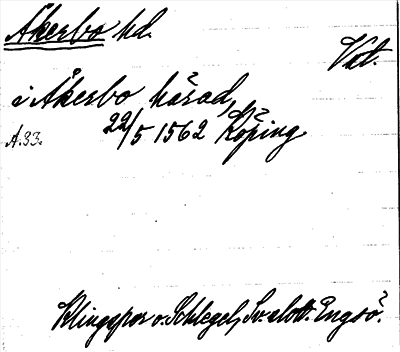 Åkerbo hd.
Vstt.
i Åkerbo härad,
A.33. 22/5 1562 Köping
Klingspor o. Schlegel, Sv. slott. Engsö.